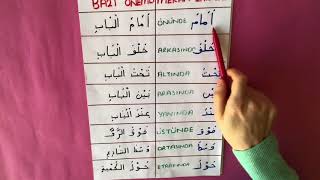 BAZI ÖNEMLİ MEKAN
أَمَامَ ÖNÜNDE أَمَامَ الْبَابِ
خَلْفَ ARKASINDA خَلْفَ الْبَابِ
تَحْتَ ALTINDA تَحْتَ الْبَابِ
بَيْنَ ARASINDA بَيْنَ الْبَابِ
عِنْدَ YANINDA عِنْدَ الْبَابِ
فَوْقَ ÜSTÜNDE فَوْقَ الرَّفِّ
وَسَطَ ORTASINDA وَسَطَ
حَوْلَ ETRAFINDA حَوْلَ الْكَعْبَةِ